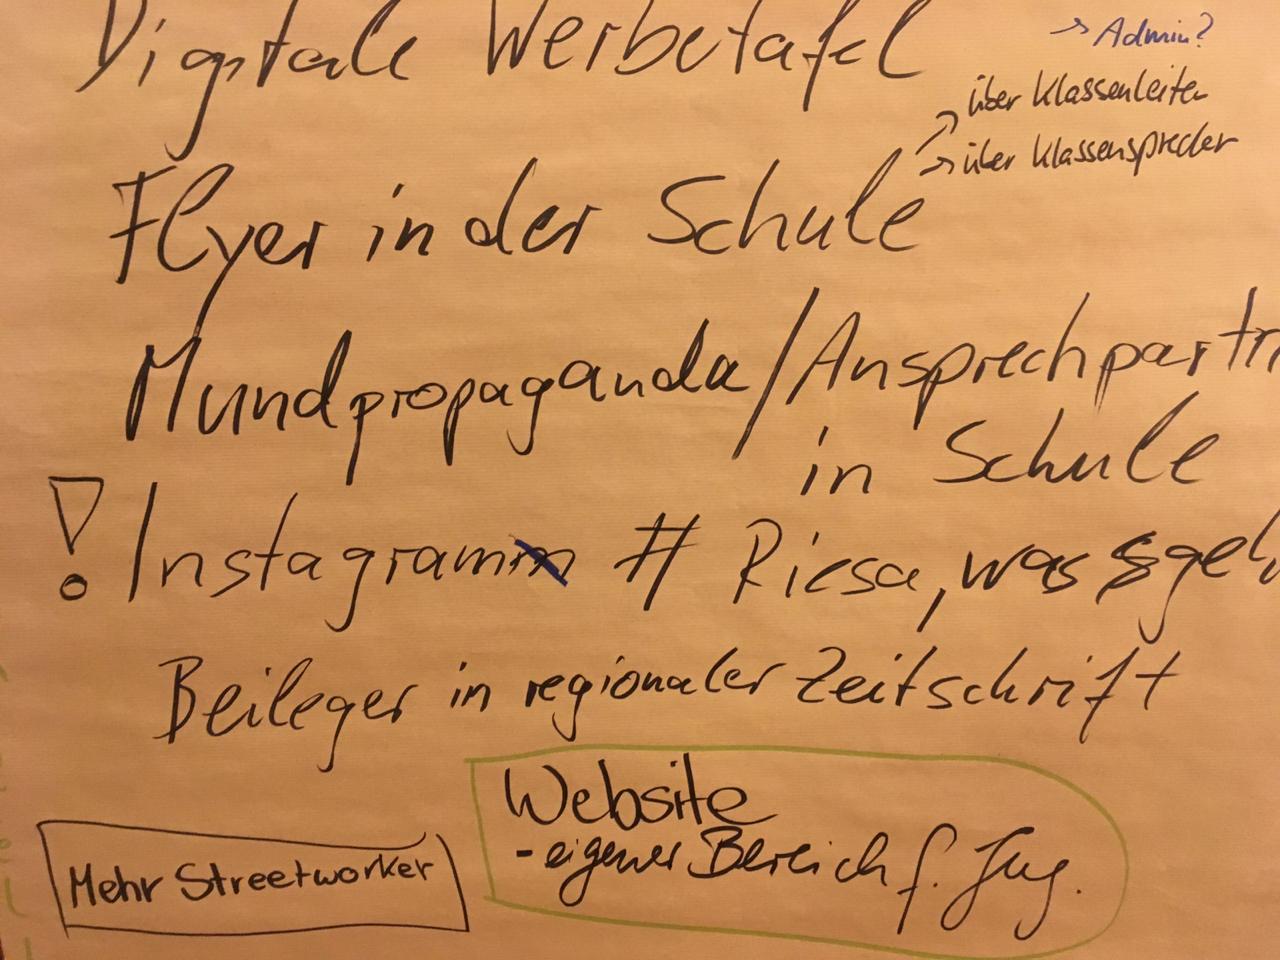 Digitale Werbetafel
→ Admin?
↗ über Klassenleiter
→ über Klassensprecher
Flyer in der Schule
Mundpropaganda/Ansprechpartn
in Schule
! Instagram # Riesa, was geh
Beileger in regionaler Zeitschrift
Website
- eigener Bereich f. Jug.
Mehr Streetworker